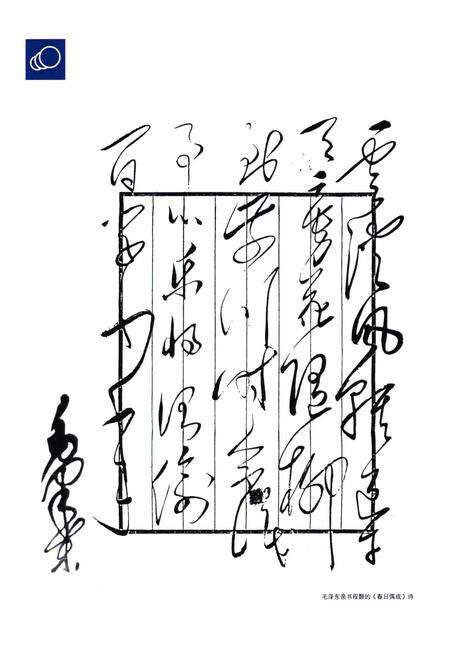 云淡风轻近午
天旁花随柳
过前川时人不识
予心乐将谓偷
闲学少年
毛泽东
毛泽东亲书程颢的《春日偶成》诗